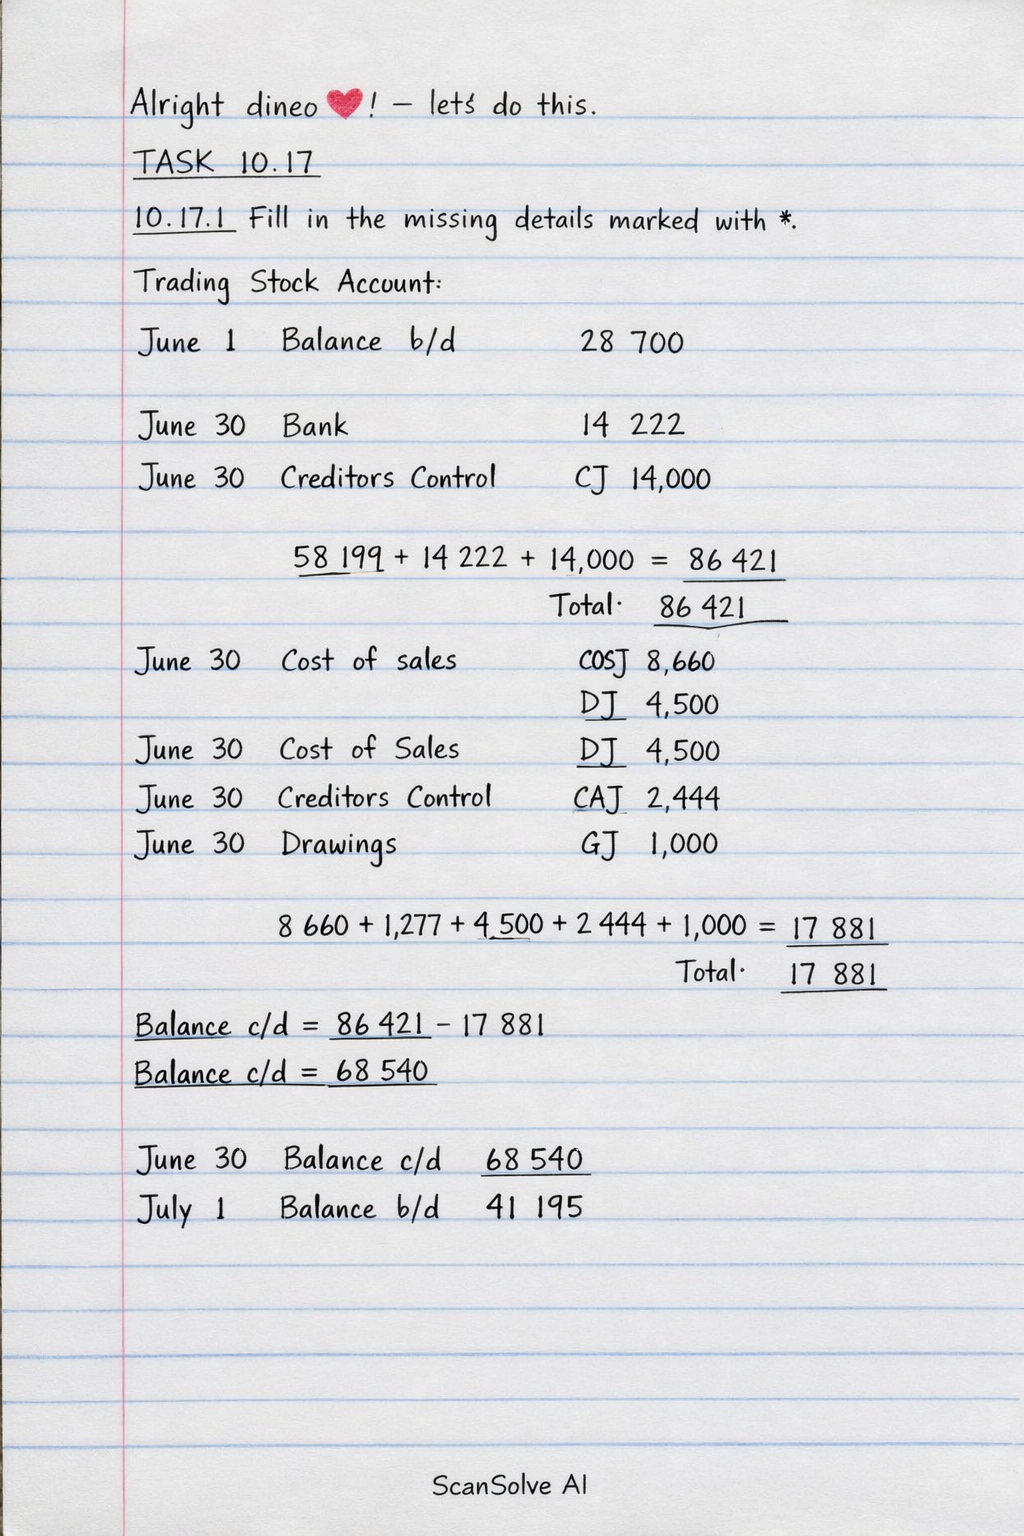 Alright dineo ❤️! – let's do this.
TASK 10.17
10.17.1 Fill in the missing details marked with *.
Trading Stock Account:
June 1 Balance b/d 28 700
June 30 Bank 14 222
June 30 Creditors Control CJ 14,000
58 199 + 14 222 + 14,000 = 86 421
Total· 86 421
June 30 Cost of sales COSJ 8,660
DJ 4,500
June 30 Cost of Sales DJ 4,500
June 30 Creditors Control CAJ 2,444
June 30 Drawings GJ 1,000
8 660 + 1,277 + 4 500 + 2 444 + 1,000 = 17 881
Total· 17 881
Balance c/d = 86 421 – 17 881
Balance c/d = 68 540
June 30 Balance c/d 68 540
July 1 Balance b/d 41 195
ScanSolve AI